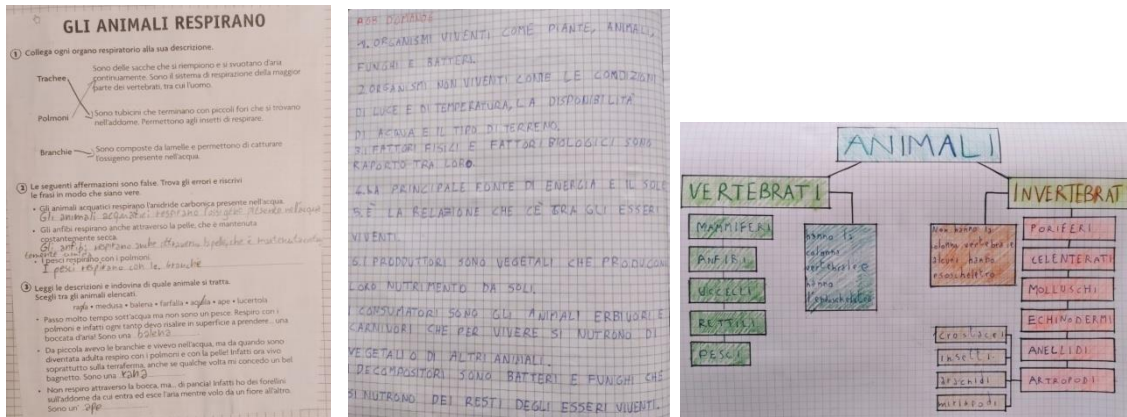 GLI ANIMALI RESPIRANO
1 Collega ogni organo respiratorio alla sua descrizione.
Trachee
Sono delle sacche che si riempiono e si svuotano d'aria
continuamente. Sono il sistema di respirazione della maggior
parte dei vertebrati, tra cui l'uomo.
Polmoni
Sono tubicini che terminano con piccoli fori che si trovano
nell'addome. Permettono agli insetti di respirare.
Branchie
Sono composte da lamelle e permettono di catturare
l'ossigeno presente nell'acqua.
2 Le seguenti affermazioni sono false. Trova gli errori e riscrivi
le frasi in modo che siano vere.
• Gli animali acquatici respirano l'anidride carbonica presente nell'acqua.
Gli animali acquatici respirano l'ossigeno presente nell'acqua
• Gli anfibi respirano anche attraverso la pelle, che è mantenuta
costantemente secca.
Gli anfibi respirano anche attraverso la pelle, che è
• I pesci respirano con i polmoni.
I pesci respirano con le branchie
3 Leggi le descrizioni e indovina di quale animale si tratta.
Scegli tra gli animali elencati.
• medusa • balena • farfalla • • ape • lucertola
• Passo molto tempo sott'acqua ma non sono un pesce. Respiro con i
polmoni e infatti ogni tanto devo risalire in superficie a prendere... una
boccata d'aria! Sono una balena
• Da piccola avevo le branchie e vivevo nell'acqua, ma da quando sono
diventata adulta respiro con i polmoni e con la pelle! Infatti ora vivo
soprattutto sulla terraferma, anche se qualche volta mi concedo un bel
bagnetto. Sono una rana
• Non respiro attraverso la bocca, ma... di pancia! Infatti ho dei forellini
sull'addome da cui entra ed esce l'aria mentre volo da un fiore all'altro.
Sono un' ape
DOMANDE
1. ORGANISMI VIVENTI COME PIANTE, ANIMALI,
FUNGHI E BATTERI.
2 ORGANISMI NON VIVENTI COME LE CONDIZIONI
DI LUCE E DI TEMPERATURA, LA DISPONIBILITÀ
DI ACQUA E IL TIPO DI TERRENO.
3. I FATTORI FISICI E FATTORI BIOLOGICI SONO
RAPORTO TRA LORO.
4. LA PRINCIPALE FONTE DI ENERGIA E IL SOLE
5. È LA RELAZIONE CHE CÈ TRA GLI ESSERI
VIVENTI.
6. I PRODUTTORI SONO VEGETALI CHE PRODUCONO
LORO NUTRIMENTO DA SOLI.
I CONSUMATORI SONO GLI ANIMALI ERBIVORI E
CARNIVORI CHE PER VIVERE SI NUTRONO DI
VEGETALI O DI ALTRI ANIMALI.
DECOMPOSITORI SONO BATTERI E FUNGHI CHE
SI NUTRONO DEI RESTI DEGLI ESSERI VIVENTI.
ANIMALI
VERTEBRATI
INVERTEBRAT
MAMMIFERI
ANFIBI
UCCELLI
RETTILI
PESCI
hanno la
colonna
vertebrale e
hanno
Non hanno la
colonna vertebrale
alcuni hanno
PORIFERI
CELENTERATI
MOLLUSCHI
ECHINODERMI
ANELLIDI
ARTROPODI
Crostacei
insetti
arachidi
miriapodi